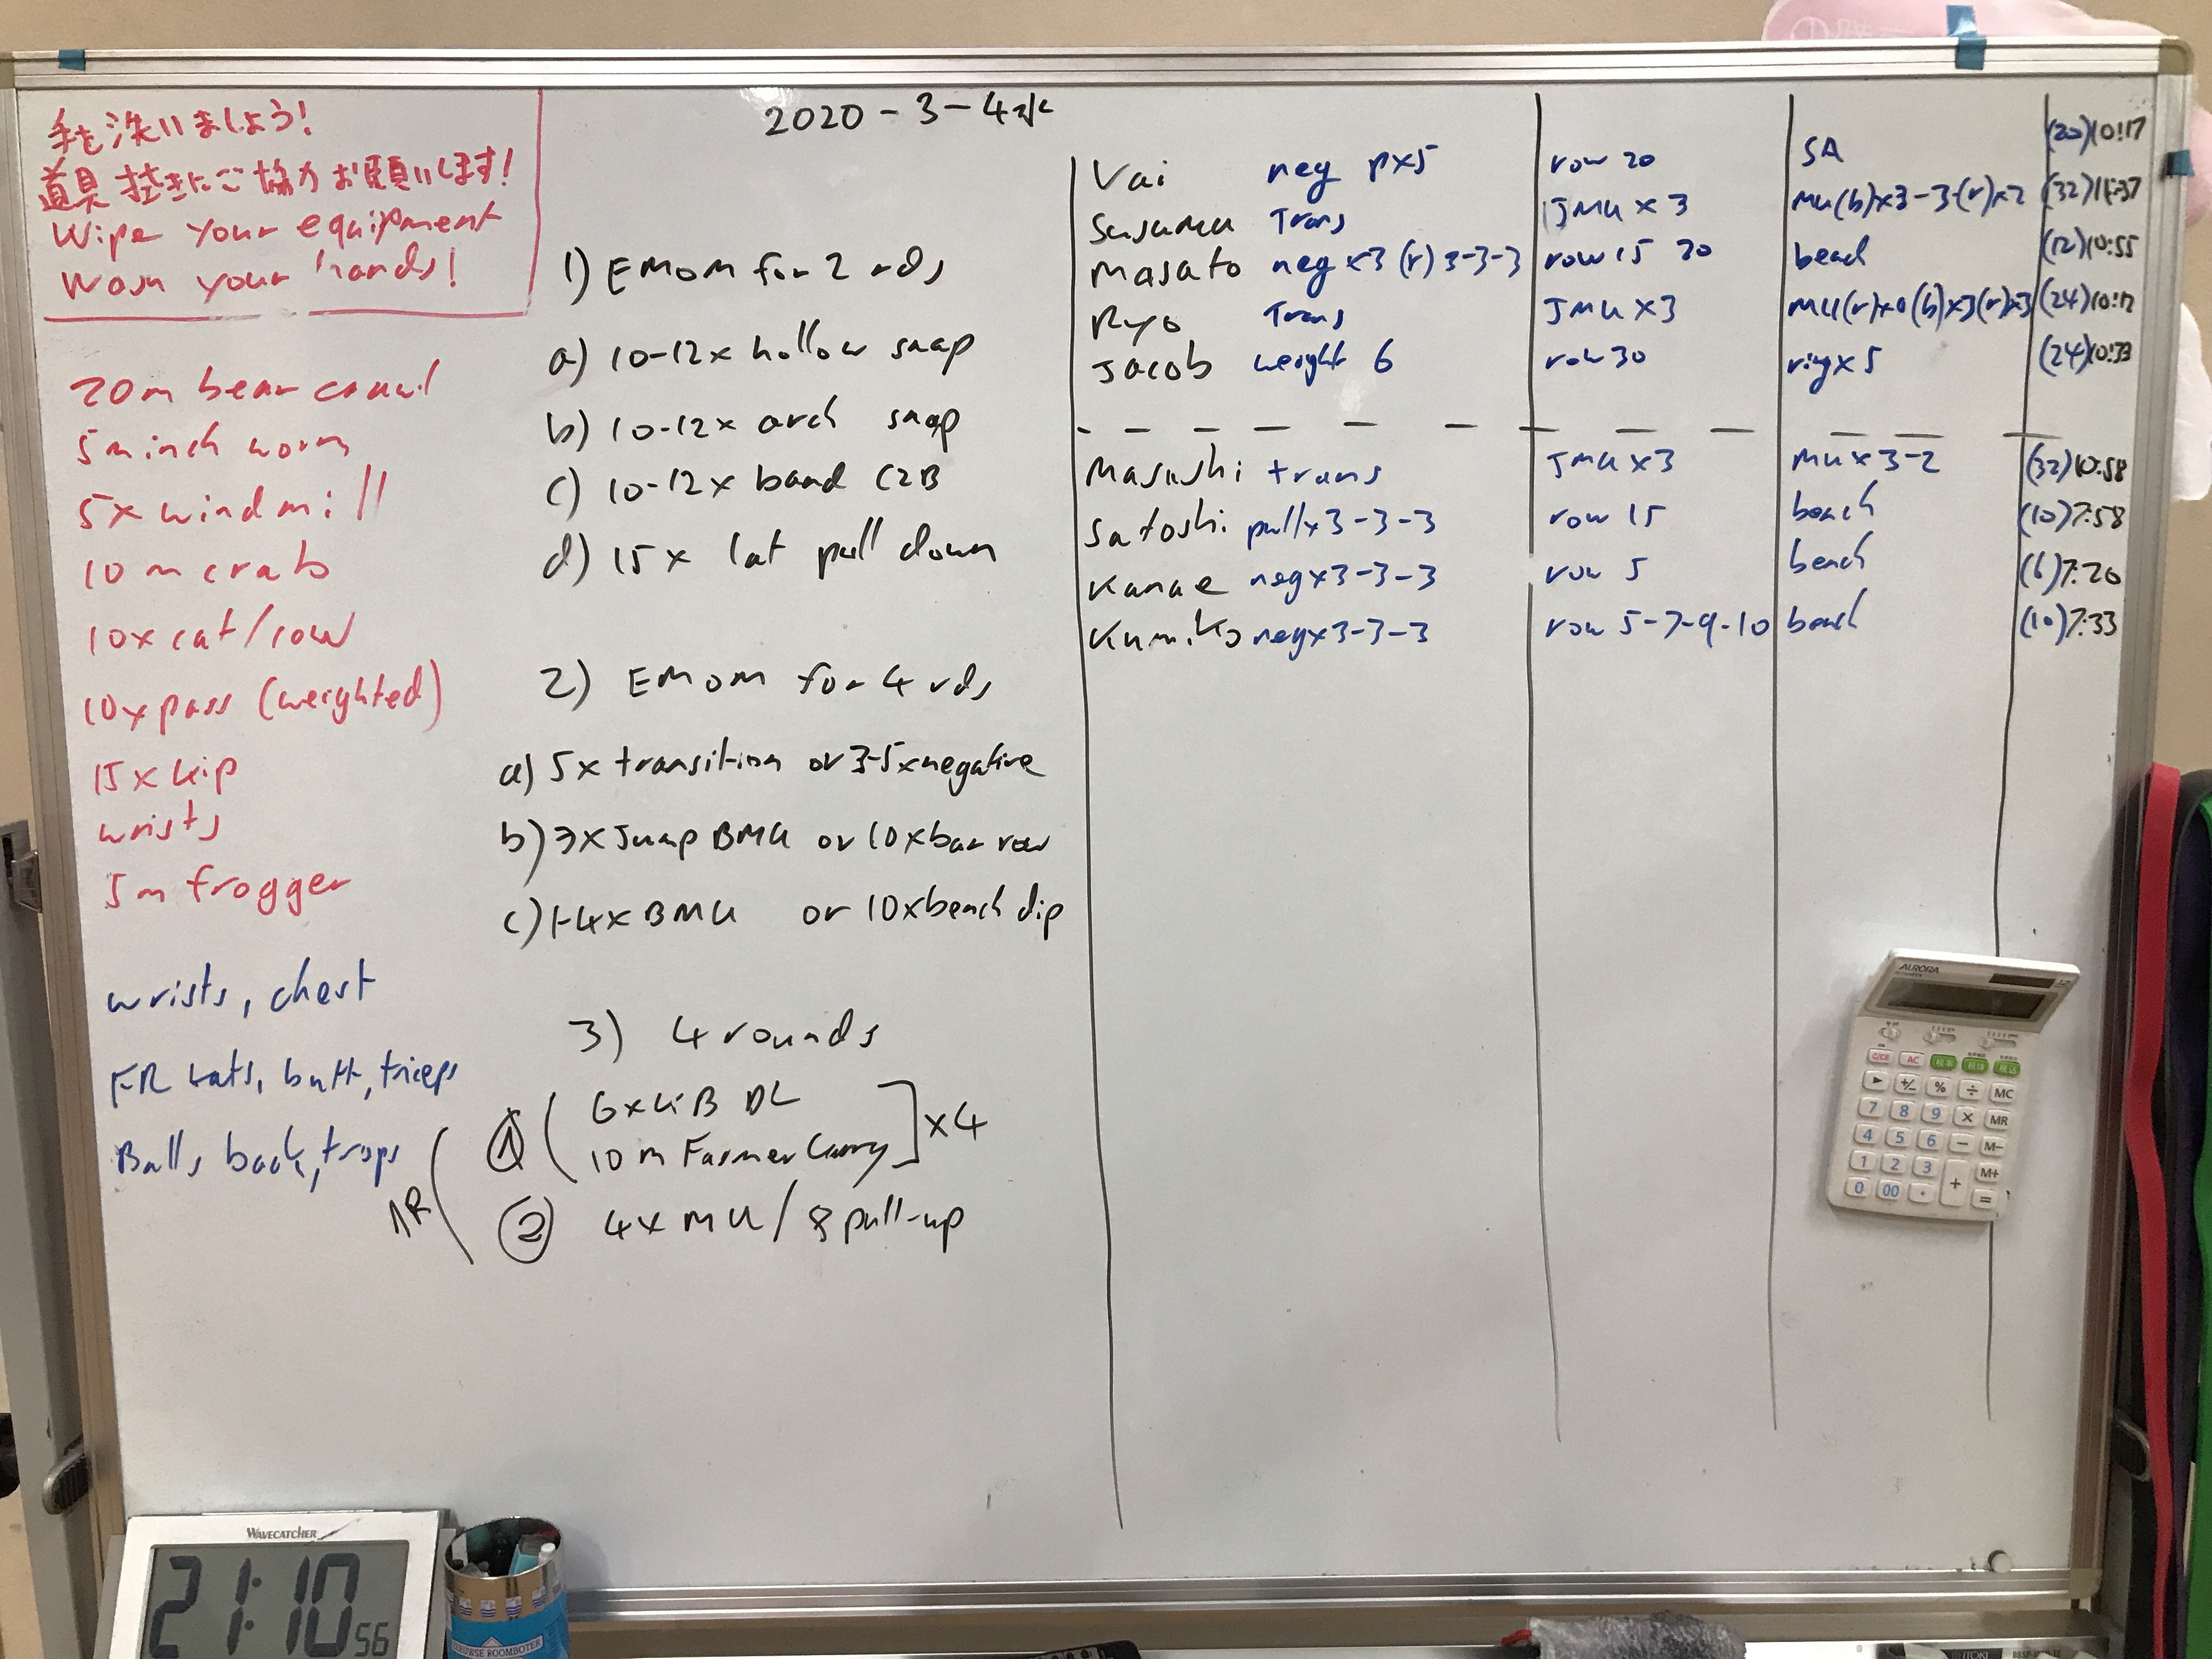 2020-3-4水
手を洗いましょう!
道具拭きにご協力お願いします!
Wipe your equipment
Wash your hands!
20m bear crawl
5m inch worm
5x windmill
10m crab
10x cat/cow
10x pass (weighted)
15x kip
wrists
5m frogger
wrists, chest
FR Lats, butt, triceps
Balls back, traps
1) EMOM for 2 rds
a) 10-12x hollow snap
b) 10-12x arch snap
c) 10-12x band C2B
d) 15x lat pull down
2) EMOM for 4 rds
a) 5x transition or 3-5x negative
b) 3x Jump BMU or 10x bar row
c) 1-4x BMU or 10x bench dip
3) 4 rounds
6x KB DL
1R ① 10m Farmer Carry x4
② 4x MU / 8 pull-up
Vai neg px5 row 20 SA (20)10:17
Susumu Trans JMU x 3 MU(b)x3-3-(r)x2 (32)
Masato neg x3 (r) 3-3-3 row 15 20 bench (12)10:55
Ryo Trans JMU x3 MU(r)x0(b)x3(r)x3 (24)10:12
Jacob weight 6 row 30 ring x 5 (24)10:33
Masashi trans JMU x3 MU x 3-2 (32)10:58
Satoshi pull x3-3-3 row 15 bench (10)7:58
Kanae neg x3-3-3 row 5 bench (6)7:26
Kumiko neg x3-3-3 row 5-7-9-10 bench (10)7:33
AURORA
C/CE AC
▶ +/- % ÷ MC
7 8 9 × MR
4 5 6 − M−
1 2 3 + M+
0 00 . =
WAVECATCHER
21:10 56
ROOMBOTER
ITOKI